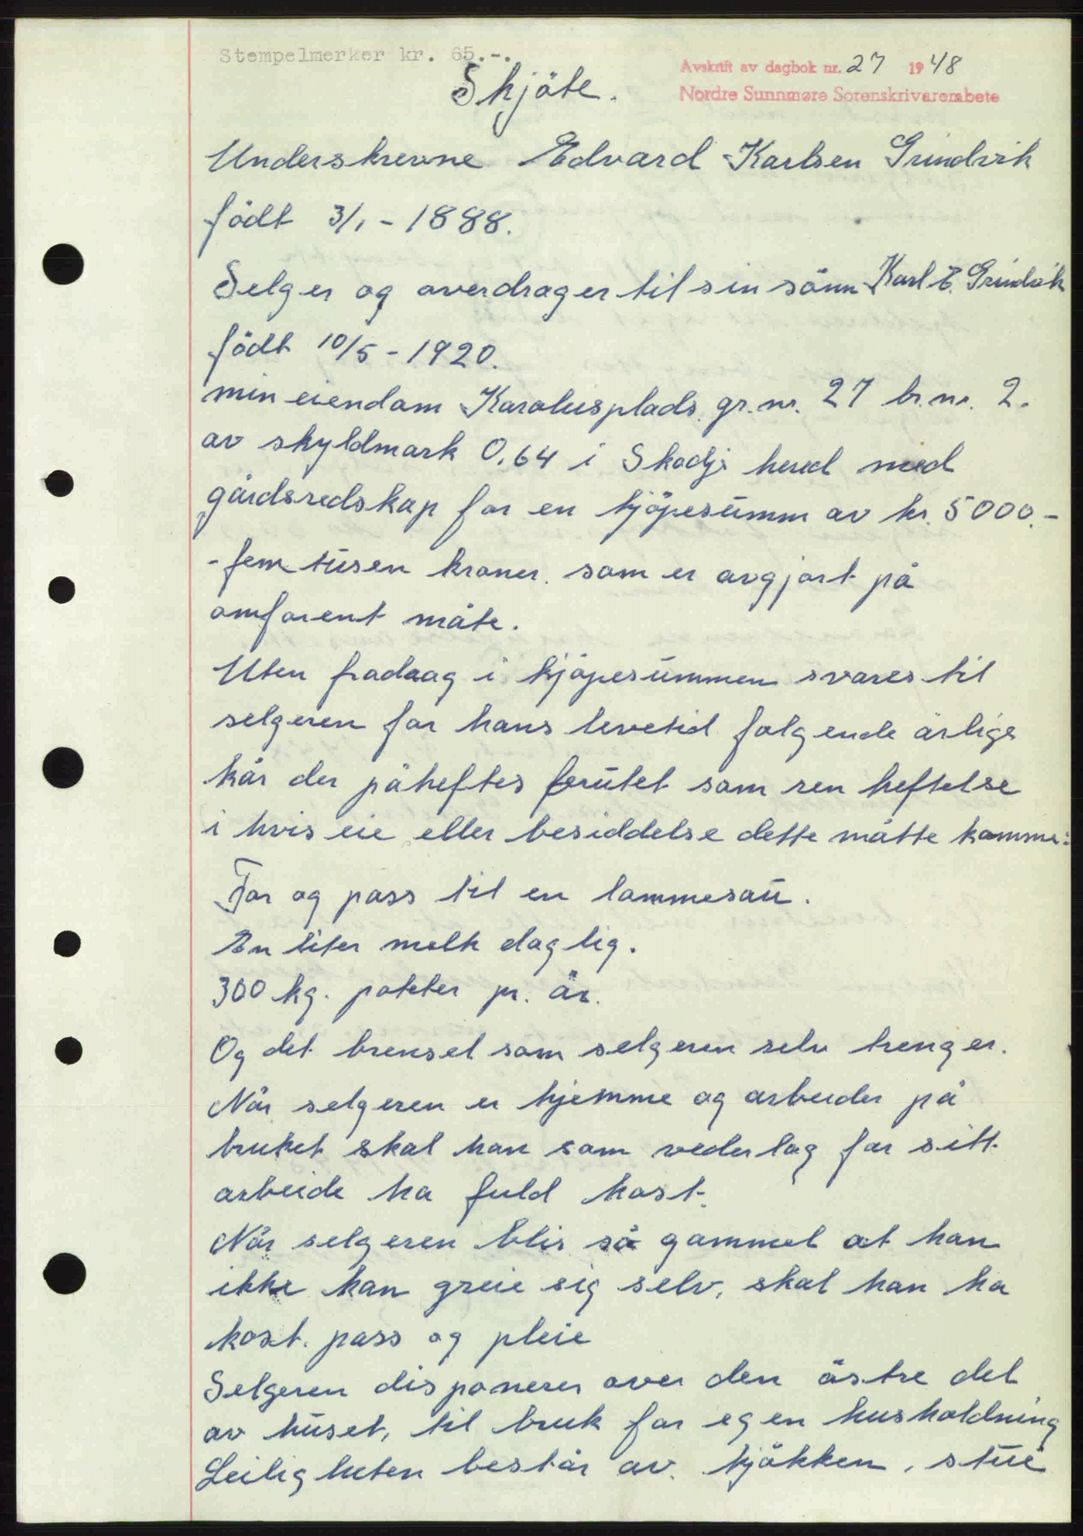 Stempelmerker kr. 65.-.
Avskrift av dagbok nr. 27 1948
Nordre Sunnmøre Sorenskriverembete
Skjöte.
Underskrevne Edvard Karlsen Grindvik
födt 3/1 - 1888.
Selger og overdrager til sin sönn Karl E. Grindvik
födt 10/5 - 1920.
min eiendom Karolusplads gr.nr. 27 br.nr. 2.
av skyldmark 0,64 i Skodje hered med
gårdsredskap for en kjöpesumm av kr. 5000.-
- fem tusen kroner. som er avgjort på
omforent måte.
Uten fradaag i kjöpesummen svares til
selgeren for hans levetid følgende årlige
kår der påheftes bruket som ren heftelse
i hvis eie eller besiddelse dette måtte komme:
For og pass til en lammesau.
En liter melk daglig.
300 kg. poteter pr. år.
Og det brensel som selgeren selv trenger.
Når selgeren er hjemme og arbeider på
bruket skal han som vederlag for sitt
arbeide ha fuld kost.
Når selgeren blir så gammel at han
ikke kan greie sig selv, skal han ha
kost. pass og pleie
Selgeren disponerer over den östre del
av huset, til bruk for egen husholdning
Leiligheten består av kjökken, stue